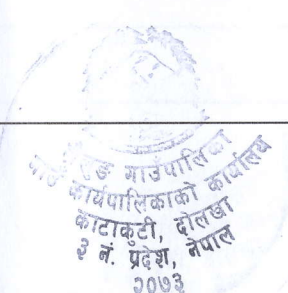 गाउँपालिका
गाउँ कार्यपालिकाको कार्यालय
काटाकुटी, दोलखा
३ नं. प्रदेश, नेपाल
२०७३